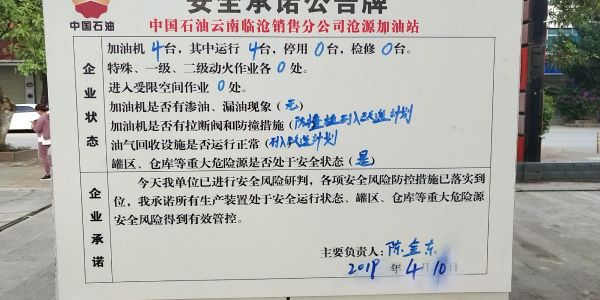 安全承诺公告牌
中国石油
中国石油云南临沧销售分公司沧源加油站
企业状态
加油机 4台，其中运行 4台，停用 0台，检修 0台。
特殊、一级、二级动火作业各 0处。
进入受限空间作业 0处。
加油机是否有渗油、漏油现象（无）
加油机是否有拉断阀和防撞措施（防撞柱列入改造计划
油气回收设施是否运行正常（列入改造计划
罐区、仓库等重大危险源是否处于安全状态（是）
企业承诺
今天我单位已进行安全风险研判，各项安全风险防控措施已落实到
位，我承诺所有生产装置处于安全运行状态、罐区、仓库等重大危险源
安全风险得到有效管控。
主要负责人：陈金东
2019 年 4月 10日